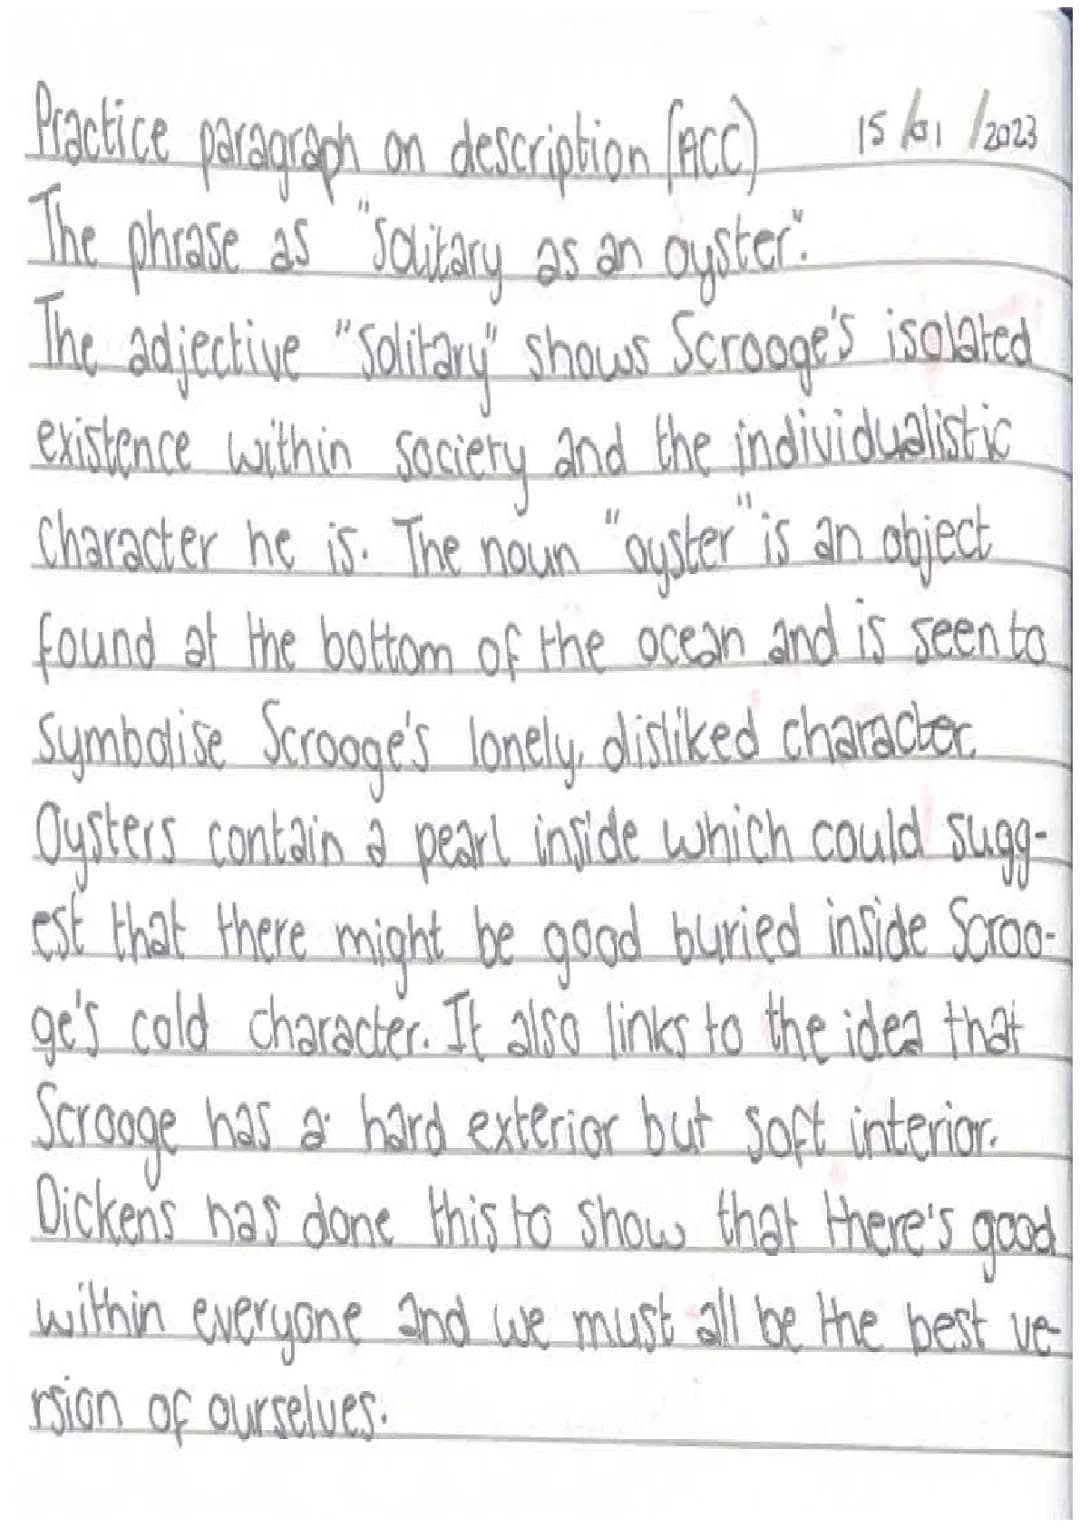 Practice paragraph on description (ACC) 15/01/2023
The phrase as "Solitary as an oyster".
The adjective "Solitary" shows Scrooge's isolated
existence within society and the individualistic
character he is. The noun "oyster" is an object
found at the bottom of the ocean and is seen to
symbolise Scrooge's lonely, disliked character.
Oysters contain a pearl inside which could sugg-
est that there might be good buried inside Scroo-
ge's cold character. It also links to the idea that
Scrooge has a hard exterior but soft interior.
Dickens has done this to show that there's good
within everyone and we must all be the best ve-
rsion of ourselves.